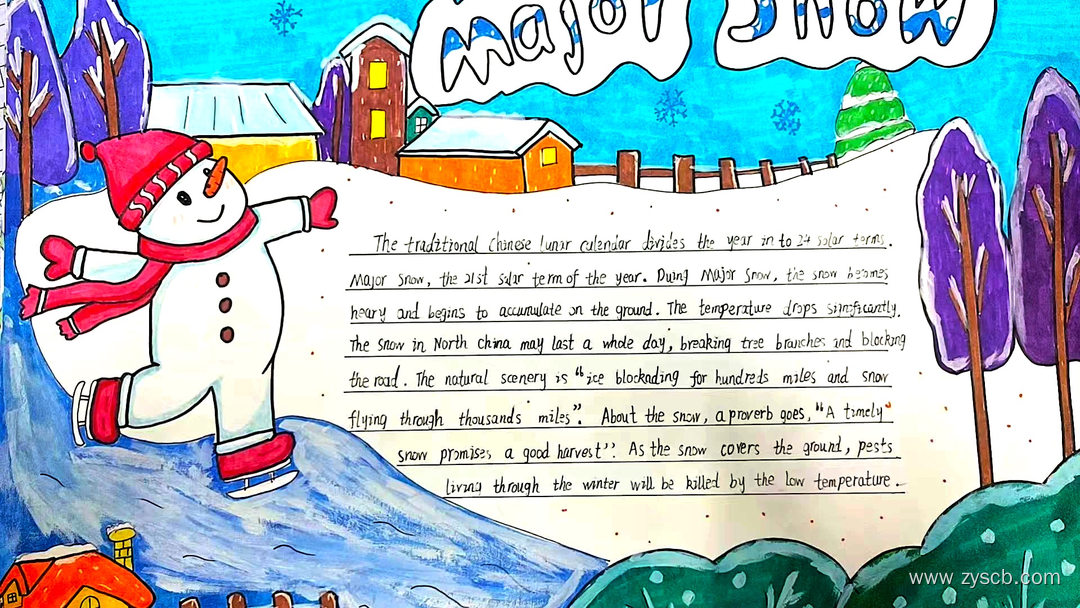 Major Snow
The traditional Chinese lunar calendar divides the year in to 24 solar terms.
Major Snow, the 21st solar term of the year. Duing Major Snow, the snow becomes
heavy and begins to accumulate on the ground. The temperature drops significantly.
The snow in North China may last a whole day, breaking tree branches and blocking
the road. The natural scenery is "ice blockading for hundreds miles and snow
flying through thousands miles". About the snow, a proverb goes, "A timely
snow promises a good harvest". As the snow covers the ground, pests
living through the winter will be killed by the low temperature.
www.zyscb.com